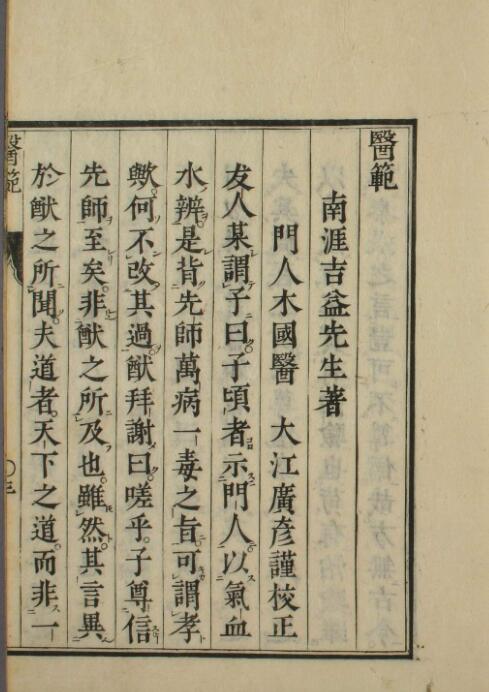 醫範
南涯吉益先生著
門人木國醫 大江廣彦謹校正
友人某謂予曰子頃者示門人以氣血
水辨是背先師萬病一毒之旨可謂孝
歟何不改其過猷拜謝曰嗟乎子尊信
先師至矣非猷之所及也雖然其言異
於猷之所聞夫道者天下之道而非一
醫範
三